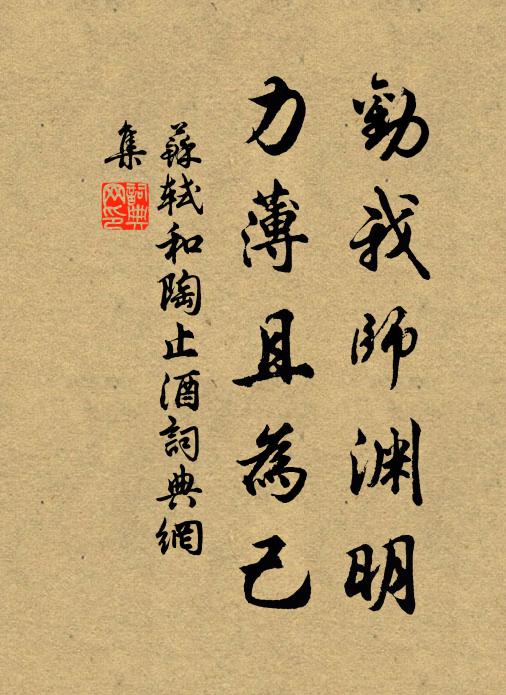 勸我師淵明
力薄且為己
蘇軾和陶止酒詞典網
集
詞典
网印